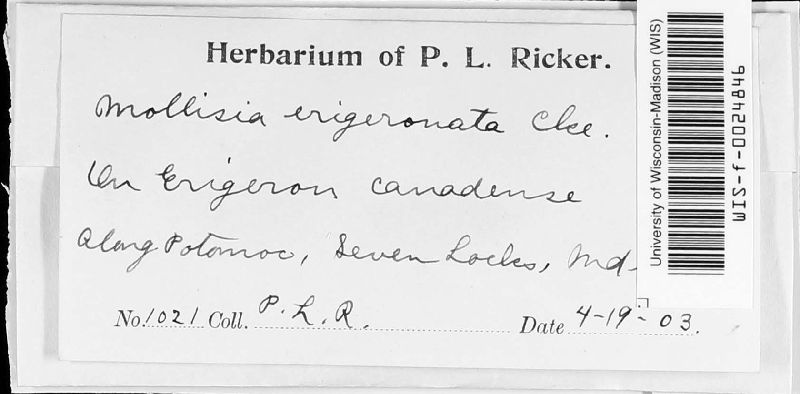 Herbarium of P. L. Ricker.
Mollisia erigeronata Cke.
On Erigeron canadense
Along Potomac, Seven Locks, Md.
No. 1021 Coll. P. L. R. Date 4-19-03.
University of Wisconsin-Madison (WIS)
WIS-f-0024846